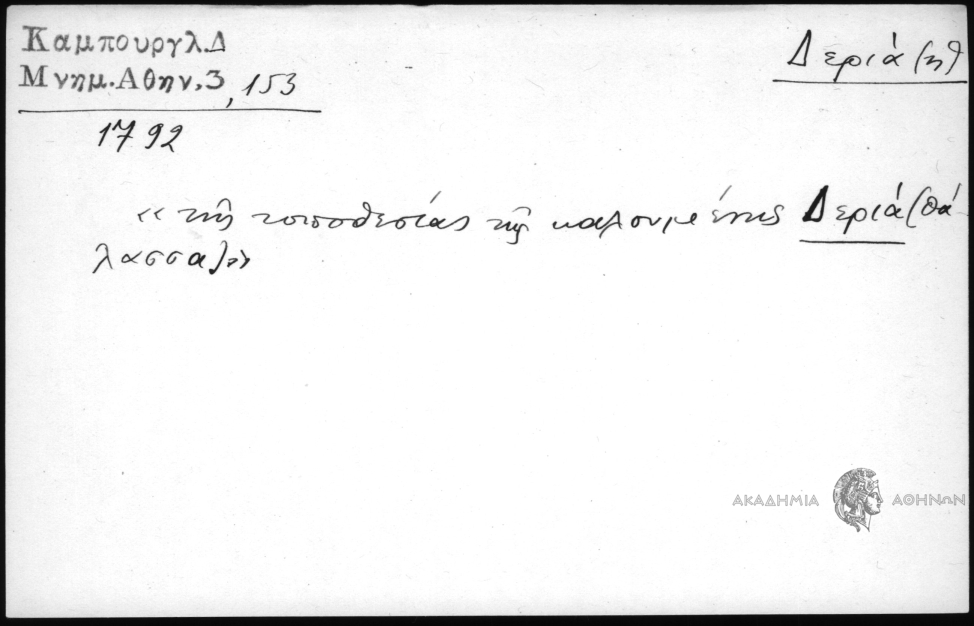 Καμπουργλ.Δ
Μνημ.Αθην.3, 153
1792
Δεριά (η)
« τῆς τοποθεσίας τῆς καλουμένης Δεριά (θά-
λασσα)»
ΑΚΑΔΗΜΙΑ ΑΘΗΝΩΝ